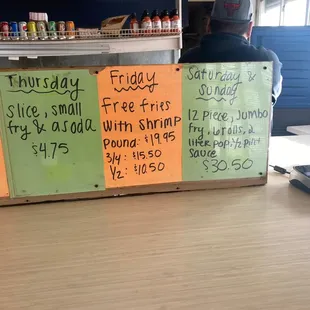 Thursday
Slice, small
fry & a soda
$4.75
Friday
Free fries
with shrimp
Pound: $19.95
3/4: $15.50
1/2: $10.50
Saturday &
Sunday
12 piece, Jumbo
fry, 6 rolls, 2
liter pop, 1/2 pint
sauce
$30.50